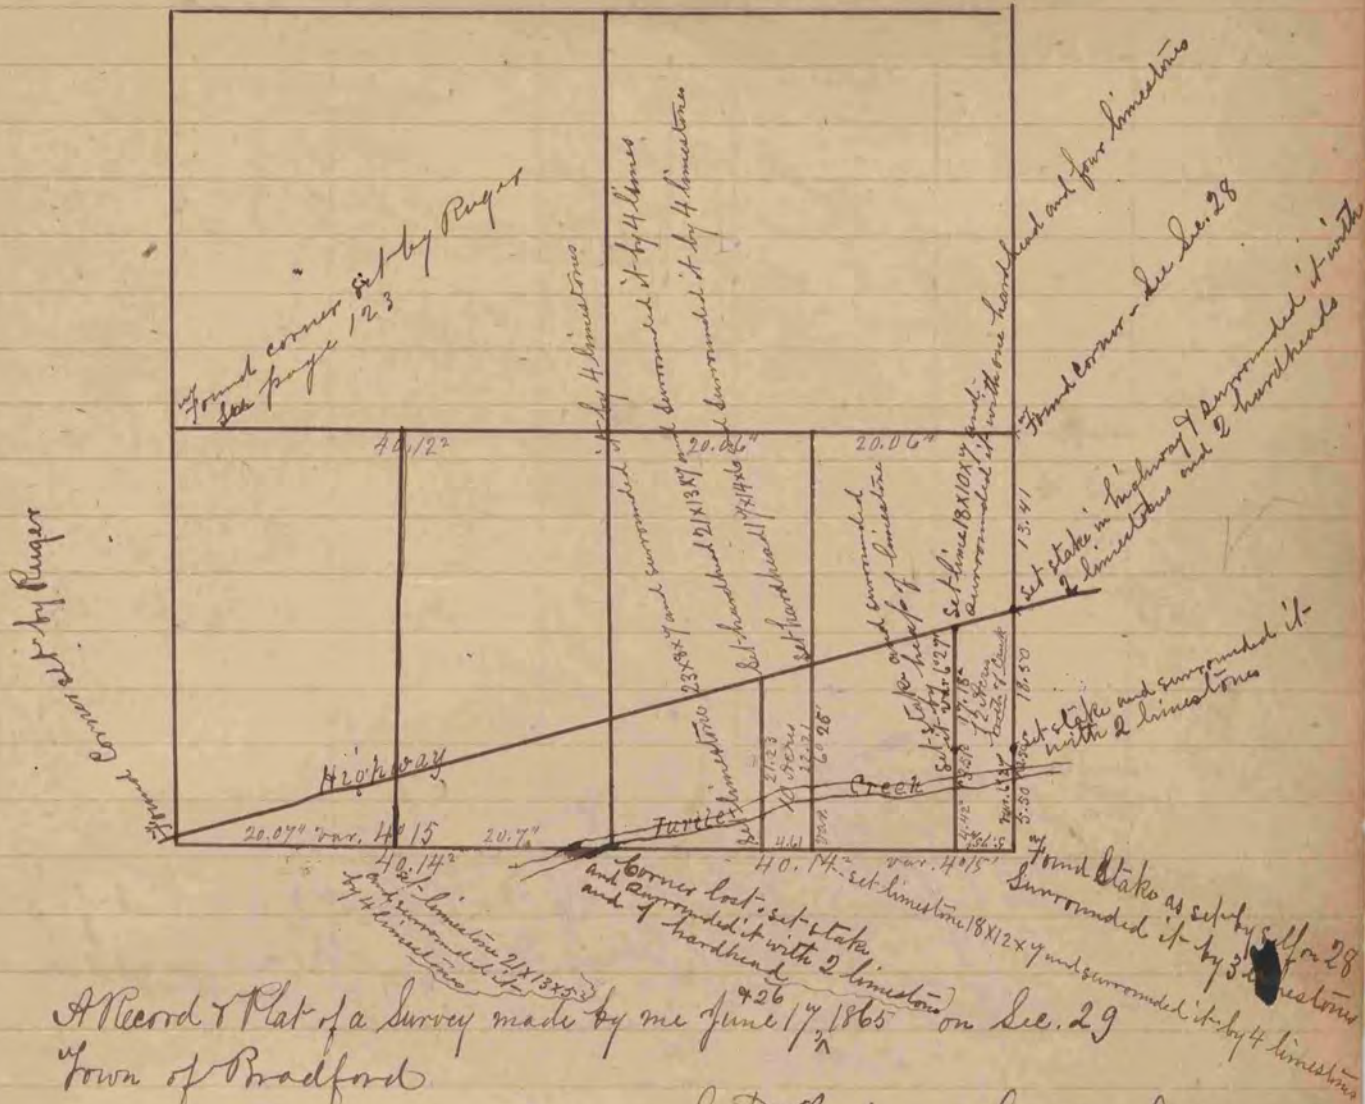 Found corner set by Ruger
See page 123
Found Corner set by Ruger
40.12²
20.06"
20.06"
23x8x7 and surrounded it by 4 limestones
Set hardhead 21x13x7 and surrounded it by 4 limes
Set hardhead 17x14x6 and surrounded it by 4 limestones
Set stake and surrounded
it by heap of limestone
Set lime 18x10x7 and
surrounded it with one hardhead and four limestones
Found Corner - See Sec. 28
13.41
Set stake in highway & surrounded it with
2 limestones and 2 hardheads
18.50
Set stake and surrounded it
with 2 limestones
5.50
var 6°27'
17.18
12 Acres
North of Creek
4.42
Highway
Turtle Creek
Set limestone
21.23
Acres
22.71
var 6°26'
4.61
20.07" var. 4°15
20.7"
40.14²
40.14² var. 4°15'
Set limestone 21x13x5
and surrounded it
by 4 limestones
Corner lost. set stake
and surrounded it with 2 limestones
and 1 hardhead
set limestone 18x12x7 and surrounded it by 4 limestones
Found Stake as set by self on 28
Surrounded it by 3 limestones
A Record & Plat of a Survey made by me June 17 & 26, 1865 on Sec. 29
Town of Bradford